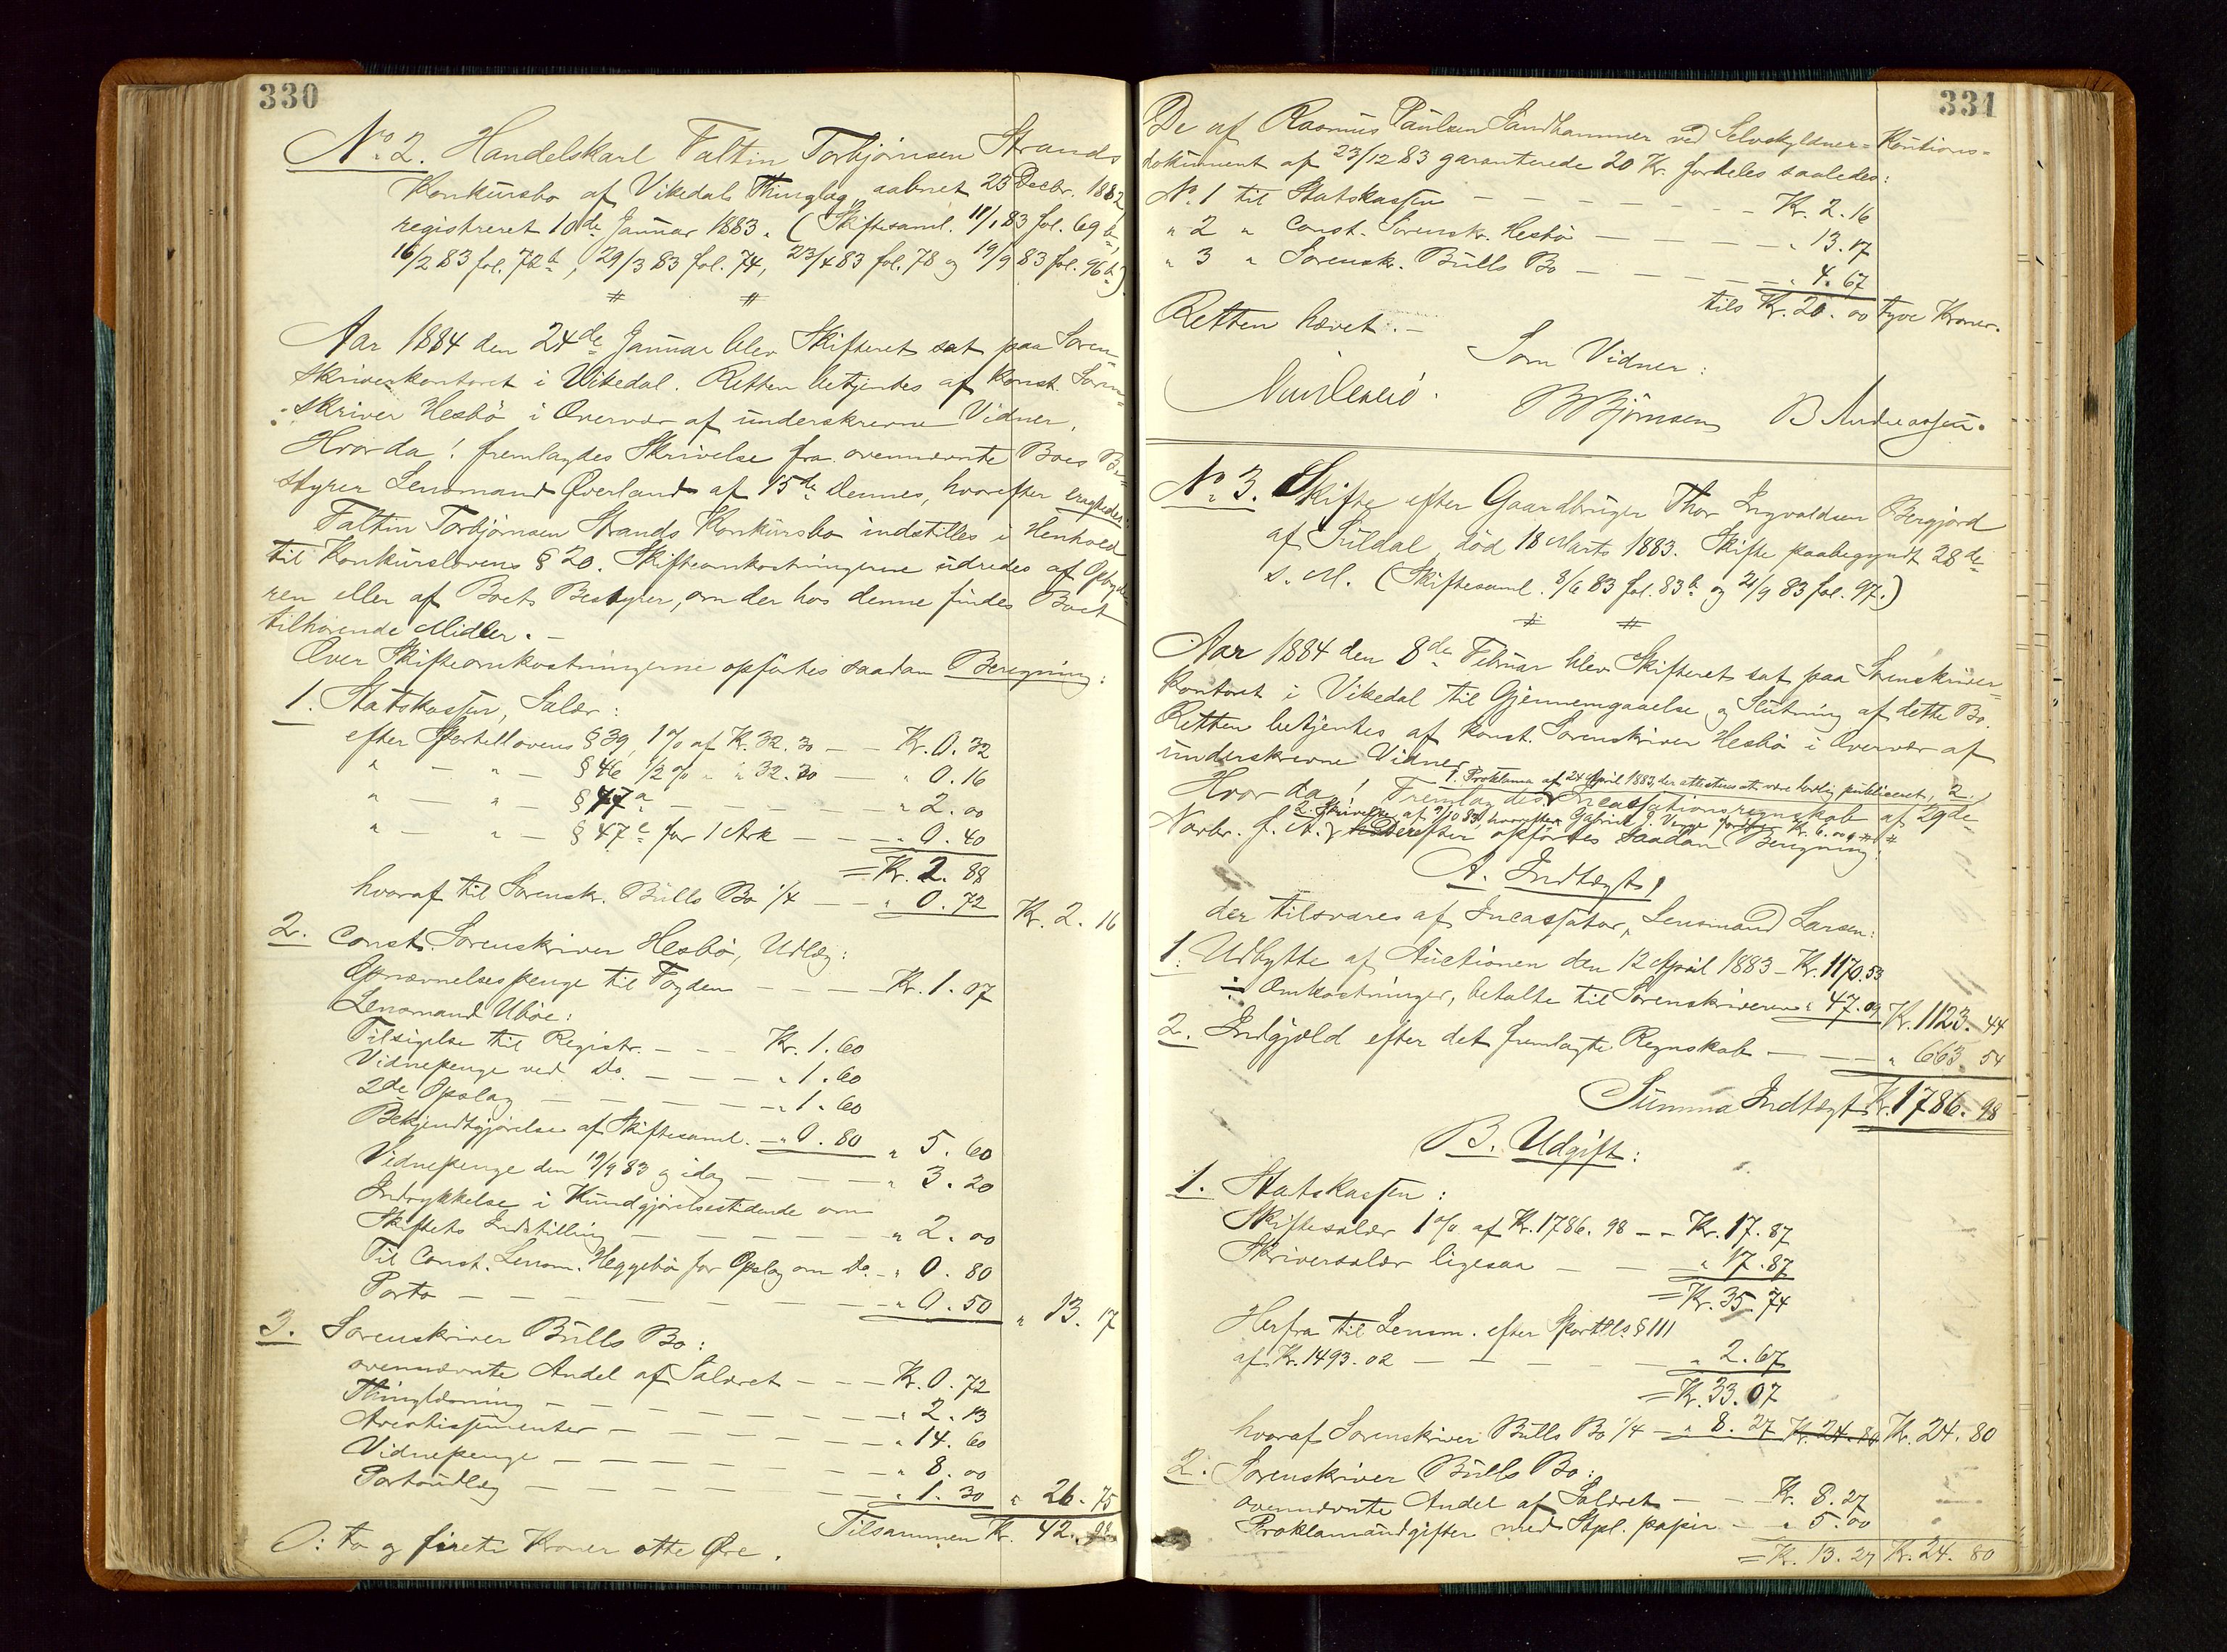 330
No. 2. Handelskarl Faltin Torbjørnsen Strands
Konkursbo af Vikedals Thinglag, aabnet 23 Decbr. 1882,
registreret 10de Januar 1883. (Skiftesaml. 11/1 83 fol. 69 b,
16/2 83 fol. 72 b, 29/3 83 fol. 74, 23/4 83 fol. 78 og 19/9 83 fol. 96 b.)
Aar 1884 den 24de Januar blev Skifteret sat paa Soren-
skriverkontoret i Vikedal. Retten betjentes af Const. Soren-
skriver Hesbö i Overvær af underskrevne Vidner.
Hvorda! fremlagdes Skrivelse fra ovennævnte Boes Be-
styrer Lensmand Överland af 15de dennes, hvorefter eragtedes:
Faltin Torbjørnsen Strands Konkursbo indstilles i Henhold
til Konkurslovens § 20. Skifteomkostningerne udredes af Opbyde-
ren eller af Boets Bestyrer, om der hos denne findes Boet
tilhørende Midler. –
Over Skifteomkostningerne opførtes saadan Beregning:
1. Statskassen, Salær:
efter Sportellovens § 39, 1% af Kr. 32.30 – – Kr. 0.32
" — " — § 46 1/2% " " 32.30 — " 0.16
" — " — § 47 a — — — — " 2.00
" — " — § 47 c for 1 Ark — — " 0.40
= Kr. 2.88
hvoraf til Sorenskr. Bülls Bo 1/4 — — " 0.72 Kr. 2.16
2. Const. Sorenskriver Hesbö, Udlæg:
Opnævnelsespenge til Fogden — — — Kr. 1.07
Lensmand Ubøe:
Tilsigelse til Registr. — — — Kr. 1.60
Vidnepenge ved Do. — — — — " 1.60
2de Opslag — — — — — " 1.60
Bekjendtgjørelse af Skiftesaml. — " 0.80 " 5.60
Vidnepenge den 19/9 83 og idag — — — — " 3.20
Indrykkelse i Kundgjørelsestidende om
Skiftets Indstilling — — — — — " 2.00
Til Const. Lensm. Heggebö for Opslag om Do. – " 0.80
Porto — — — — — — — " 0.50 " 13.17
3. Sorenskriver Bülls Bo:
ovennævnte Andel af Salæret — — — Kr. 0.72
Thinglæsning — — — — — — " 2.13
Avertissementer — — — — — — " 14.60
Vidnepenge — — — — — — " 8.00
Portoudlæg — — — — — — " 1.30 " 26.75
Tilsammen Kr. 42.08
O: to og fireti Kroner otte Øre.
331
De af Rasmus Paulsen Sandhammer ved Selvskyldner-Kautions-
dokument af 23/12 83 garanterede 20 Kr. fordeles saaledes:
No. 1 til Statskassen — — — — — — Kr. 2.16
" 2 " Const. Sorenskr. Hesbö — — — — — " 13.17
" 3 " Sorenskr. Bülls Bo — — — — — " 4.67
tils Kr. 20.00 tyve Kroner.
Retten hævet. –
Som Vidner:
BBjörnsen B Andreassen.
No. 3. Skifte efter Gaardbruger Thor Ingvaldsen Bergjord
af Suldal, död 18 Marts 1883. Skifte paabegyndt 28de
s. M. (Skiftesaml. 8/6 83 fol. 83 b og 21/9 83 fol. 97.)
Aar 1884 den 8de Februar blev Skifteret sat paa Sorenskriver-
kontoret i Vikedal til Gjennemgaaelse og Slutning af dette Bo.
Retten betjentes af Konst. Sorenskriver Hesbö i Overvær af
underskrevne Vidner.
1. Proklama af 24 April 1883, der attesteres at være lovlig publiceret, 2.
Hvor da! Fremlagdes Incassationsregnskab af 29de
2. Skrivelse af 9/10 83, hvorefter Gabriel J. Kr. 6.00
Novbr. f. A. hvorefter opførtes saadan Beregning:
A. Indtægt,
der tilsvares af Incassator, Lensmand Larsen:
1. Udbytte af Auctionen den 12 April 1883 – Kr. 1170.53
÷ Omkostninger, betalte til Sorenskriveren " 47.09 Kr. 1123.44
2. Indgjæld efter det fremlagte Regnskab — — — " 663.54
Summa Indtægt Kr. 1786.98
B. Udgift:
1. Statskassen:
Skiftesalær 1% af Kr. 1786.98 – – Kr. 17.87
Skriversalær ligesaa — — — " 17.87
= Kr. 35.74
Herfra til Lensm. efter Sportls § 111
af Kr. 1493.02 — — — — — " 2.67
= Kr. 33.07
hvoraf Sorenskriver Bülls Bo 1/4 – " 8.27 Kr. 24.80 Kr. 24.80
2. Sorenskriver Bülls Bo:
ovennævnte Andel af Salæret — — Kr. 8.27
Proklamaudgifter med Stpl. papir — " 5.00
= Kr. 13.27 Kr. 24.80